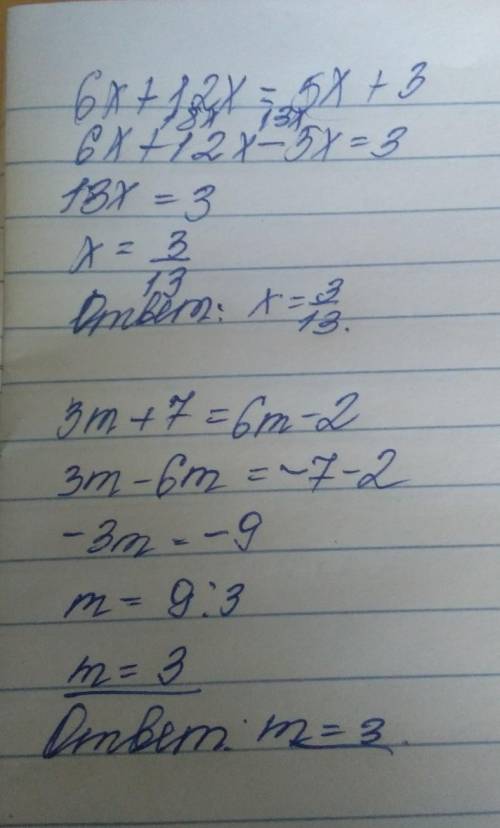 6x + 12x = 5x + 3
18x 13x
6x + 12x - 5x = 3
13x = 3
x = 3/13
Ответ: x = 3/13.
3m + 7 = 6m - 2
3m - 6m = -7 - 2
-3m = -9
m = 9 : 3
m = 3
Ответ: m = 3.